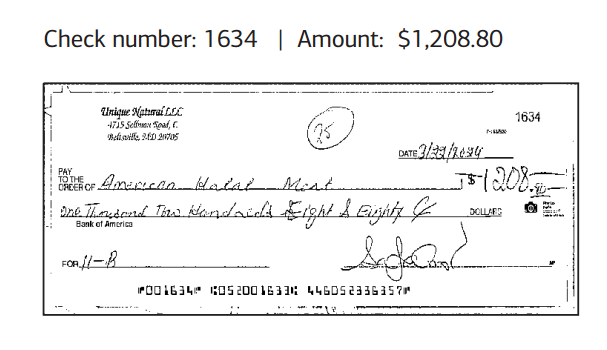 Check number: 1634 | Amount: $1,208.80
Unique Natural LLC
4715 Sellman Road,
Beltsville, MD 20705
1634
25
DATE 3/22/2024
PAY
TO THE
ORDER OF American Halal Meat $ 1208.80
One Thousand Two Hundreds Eight & Eighty C DOLLARS
Bank of America
FOR H-B
⑈001634⑈ ⑆052001633⑆ 446052336357⑈